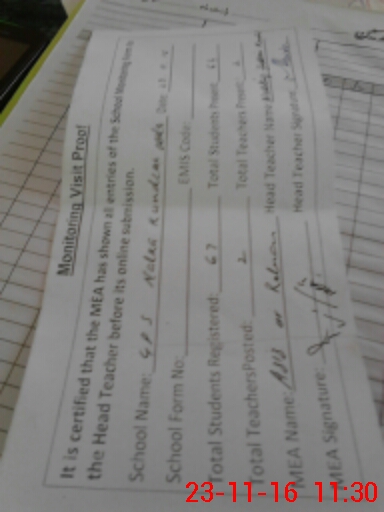 Monitoring Visit Proof
It is certified that the MEA has shown all entries of the School Monitoring Form to
the Head Teacher before its online submission.
School Name: GPS Date
School Form No: EMIS Code:
Total Students Registered: 67 Total Students Present: 66
Total TeachersPosted: 2 Total Teachers Present: 2
MEA Name: ur Rehman Head Teacher Name
MEA Signature: Head Teacher Signature
23-11-16 11:30